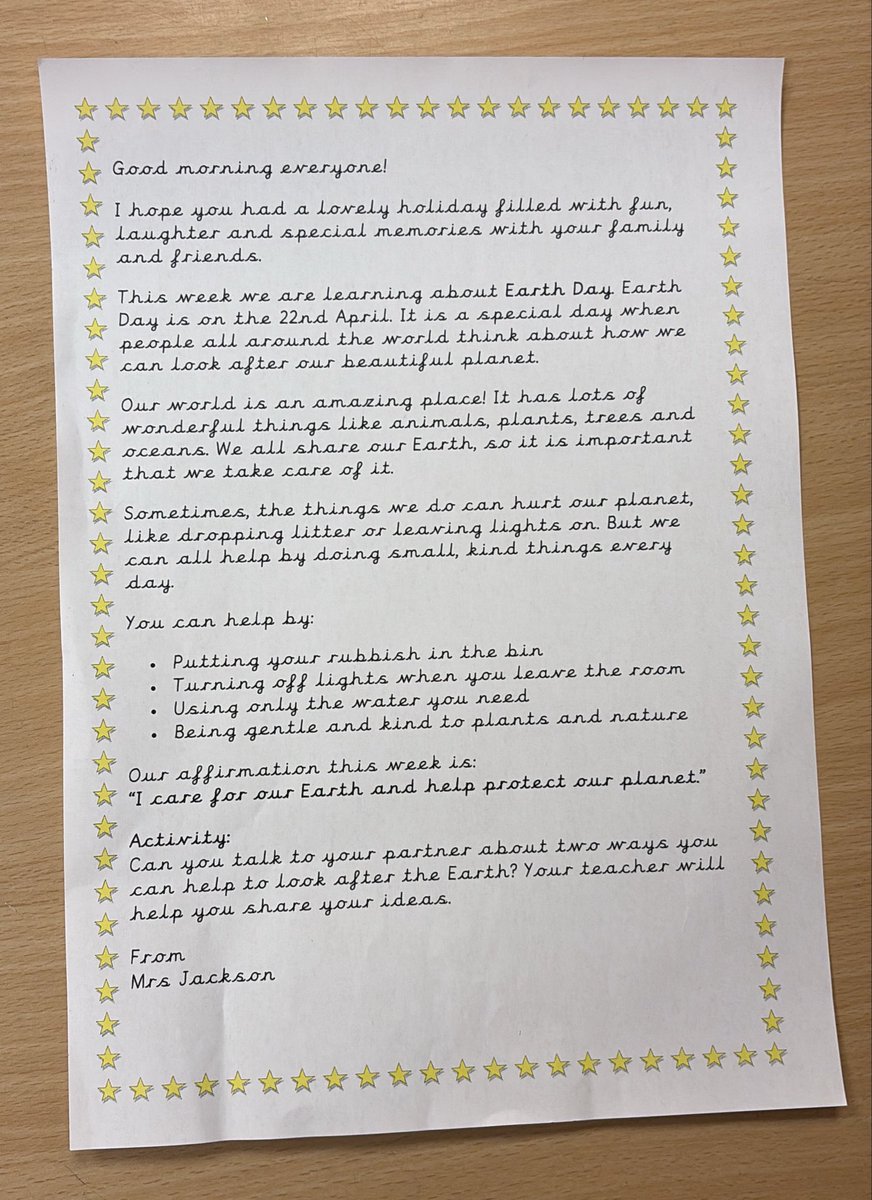 Good morning everyone!
I hope you had a lovely holiday filled with fun,
laughter and special memories with your family
and friends.
This week we are learning about Earth Day. Earth
Day is on the 22nd April. It is a special day when
people all around the world think about how we
can look after our beautiful planet.
Our world is an amazing place! It has lots of
wonderful things like animals, plants, trees and
oceans. We all share our Earth, so it is important
that we take care of it.
Sometimes, the things we do can hurt our planet,
like dropping litter or leaving lights on. But we
can all help by doing small, kind things every
day.
You can help by:
• Putting your rubbish in the bin
• Turning off lights when you leave the room
• Using only the water you need
• Being gentle and kind to plants and nature
Our affirmation this week is:
“I care for our Earth and help protect our planet.”
Activity:
Can you talk to your partner about two ways you
can help to look after the Earth? Your teacher will
help you share your ideas.
From
Mrs Jackson